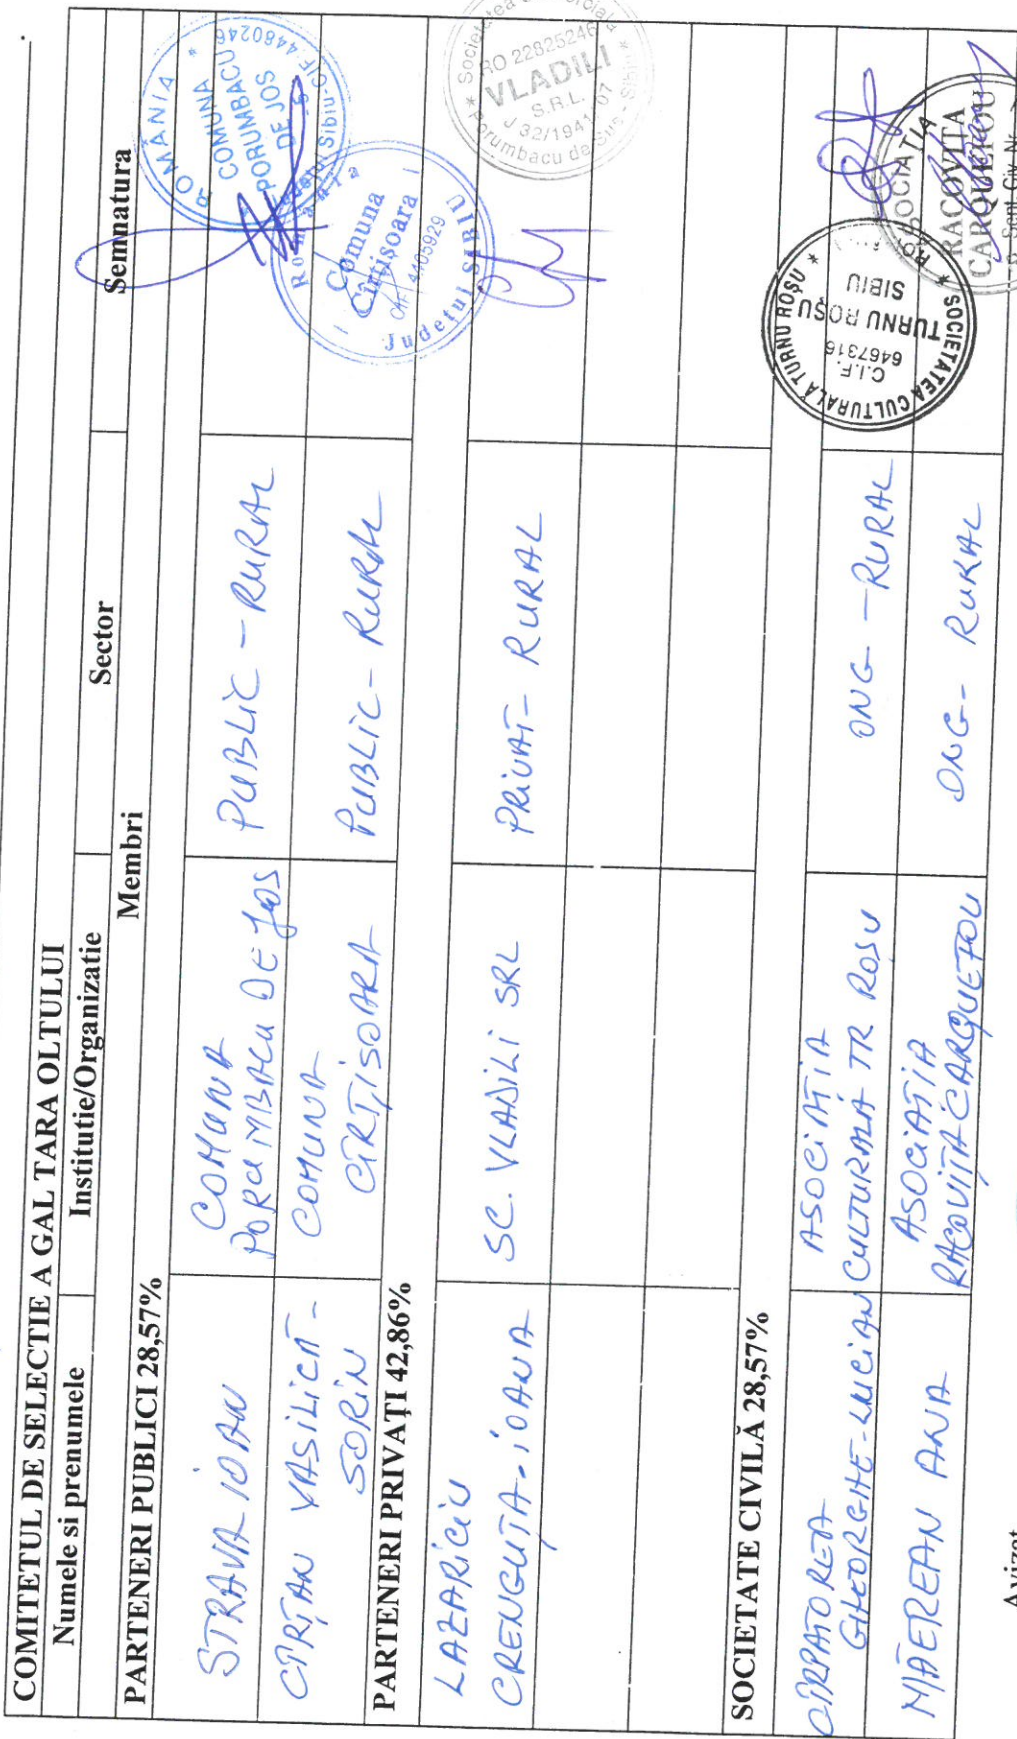 COMITETUL DE SELECTIE A GAL TARA OLTULUI
Numele si prenumele Institutie/Organizatie Sector Semnatura
Membri
PARTENERI PUBLICI 28,57%
STRAVA IOAN COMUNA PORUMBACU DE JOS PUBLIC - RURAL
ROMÂNIA *
COMUNA
PORUMBACU
DE JOS
Sibiu-CIF 4480246
CÎRȚAN VASILICĂ - SORIN COMUNA CÎRȚIȘOARA PUBLIC - RURAL
România
Comuna
Cîrțișoara
CIF 4405929
Județul SIBIU
PARTENERI PRIVAȚI 42,86%
LAZARICIU CRENGUȚA - IOANA SC. VLADILI SRL PRIVAT - RURAL
* Societatea Comercială *
RO 22825246
VLADILI
S.R.L.
J 32/1941/07
Porumbacu de Sus - Sibiu
SOCIETATE CIVILĂ 28,57%
CÎRPATOREA GHEORGHE-LUCIAN ASOCIAȚIA CULTURALĂ TR ROȘU ONG - RURAL
* SOCIETATEA CULTURALĂ TURNU ROȘU *
C.I.F.
6467316
TURNU ROȘU
SIBIU
MĂEREAN ANA ASOCIAȚIA RACOVIȚA CARQUEFOU ONG - RURAL
ASOCIAȚIA
RACOVITA
CARQUEFOU
Sent. Civ. Nr.
Avizat